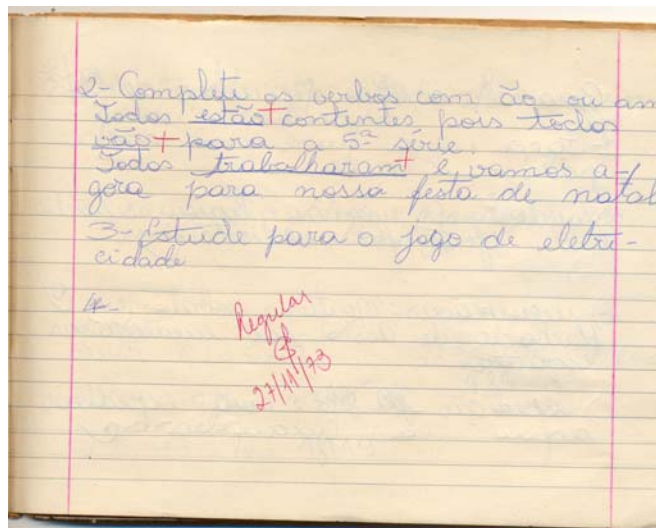 2- Complete os verbos com ão ou am
Todos estão + contentes pois todos
vão + para a 5ª série.
Todos trabalharam + e vamos a-
gora para nossa festa de natal
3- Estude para o jogo de eletri-
cidade
4-
Regular
27/11/73